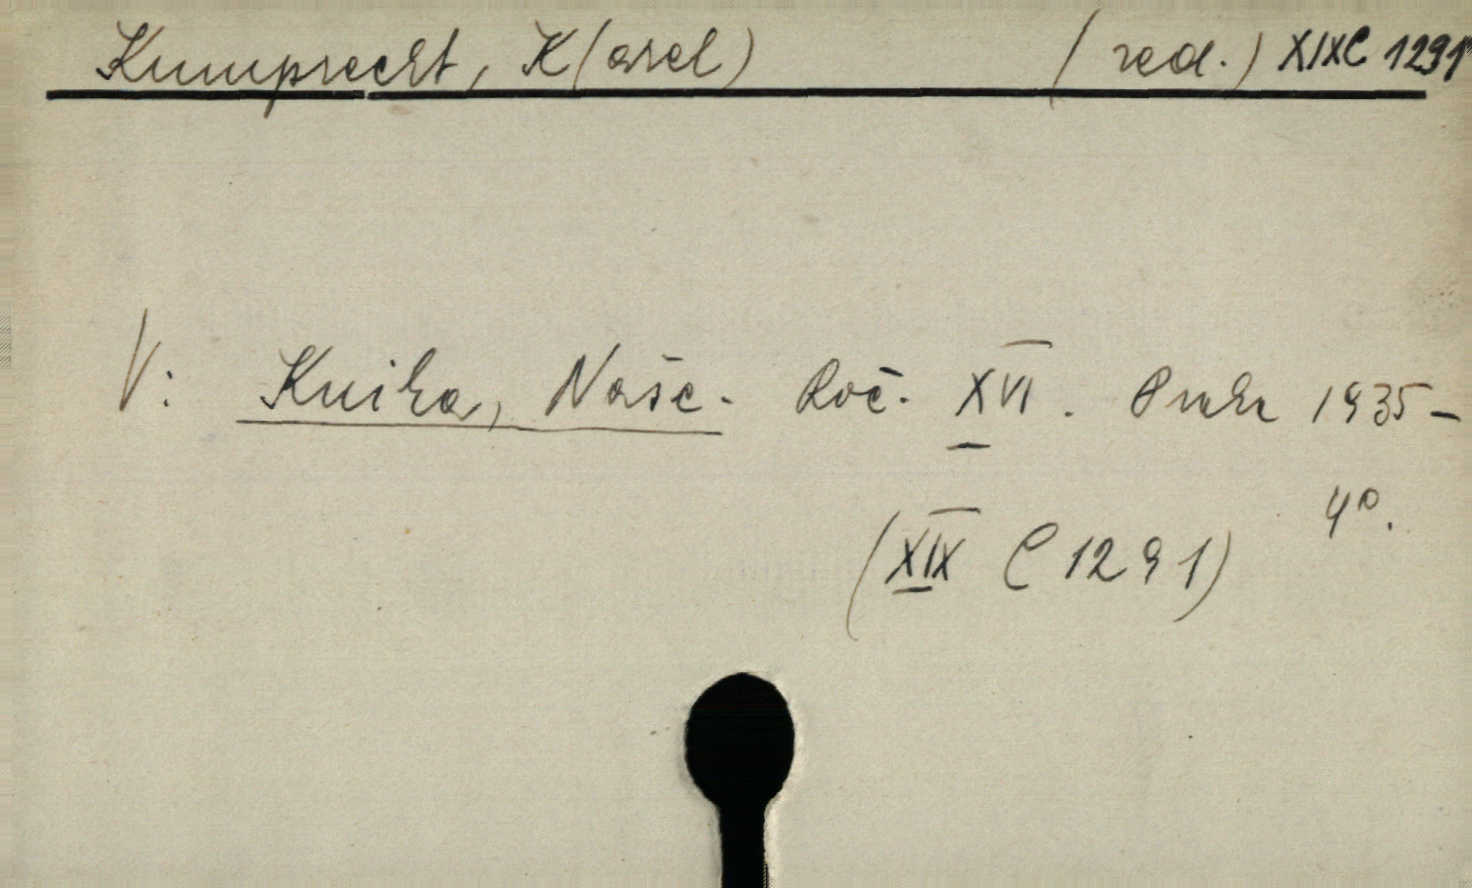 Kumprecht, K(arel) (red.) XIXC 1291
V: Kniha, Naše. Roč. XVI. Praha 1935-
4°.
(XIX C 1291)